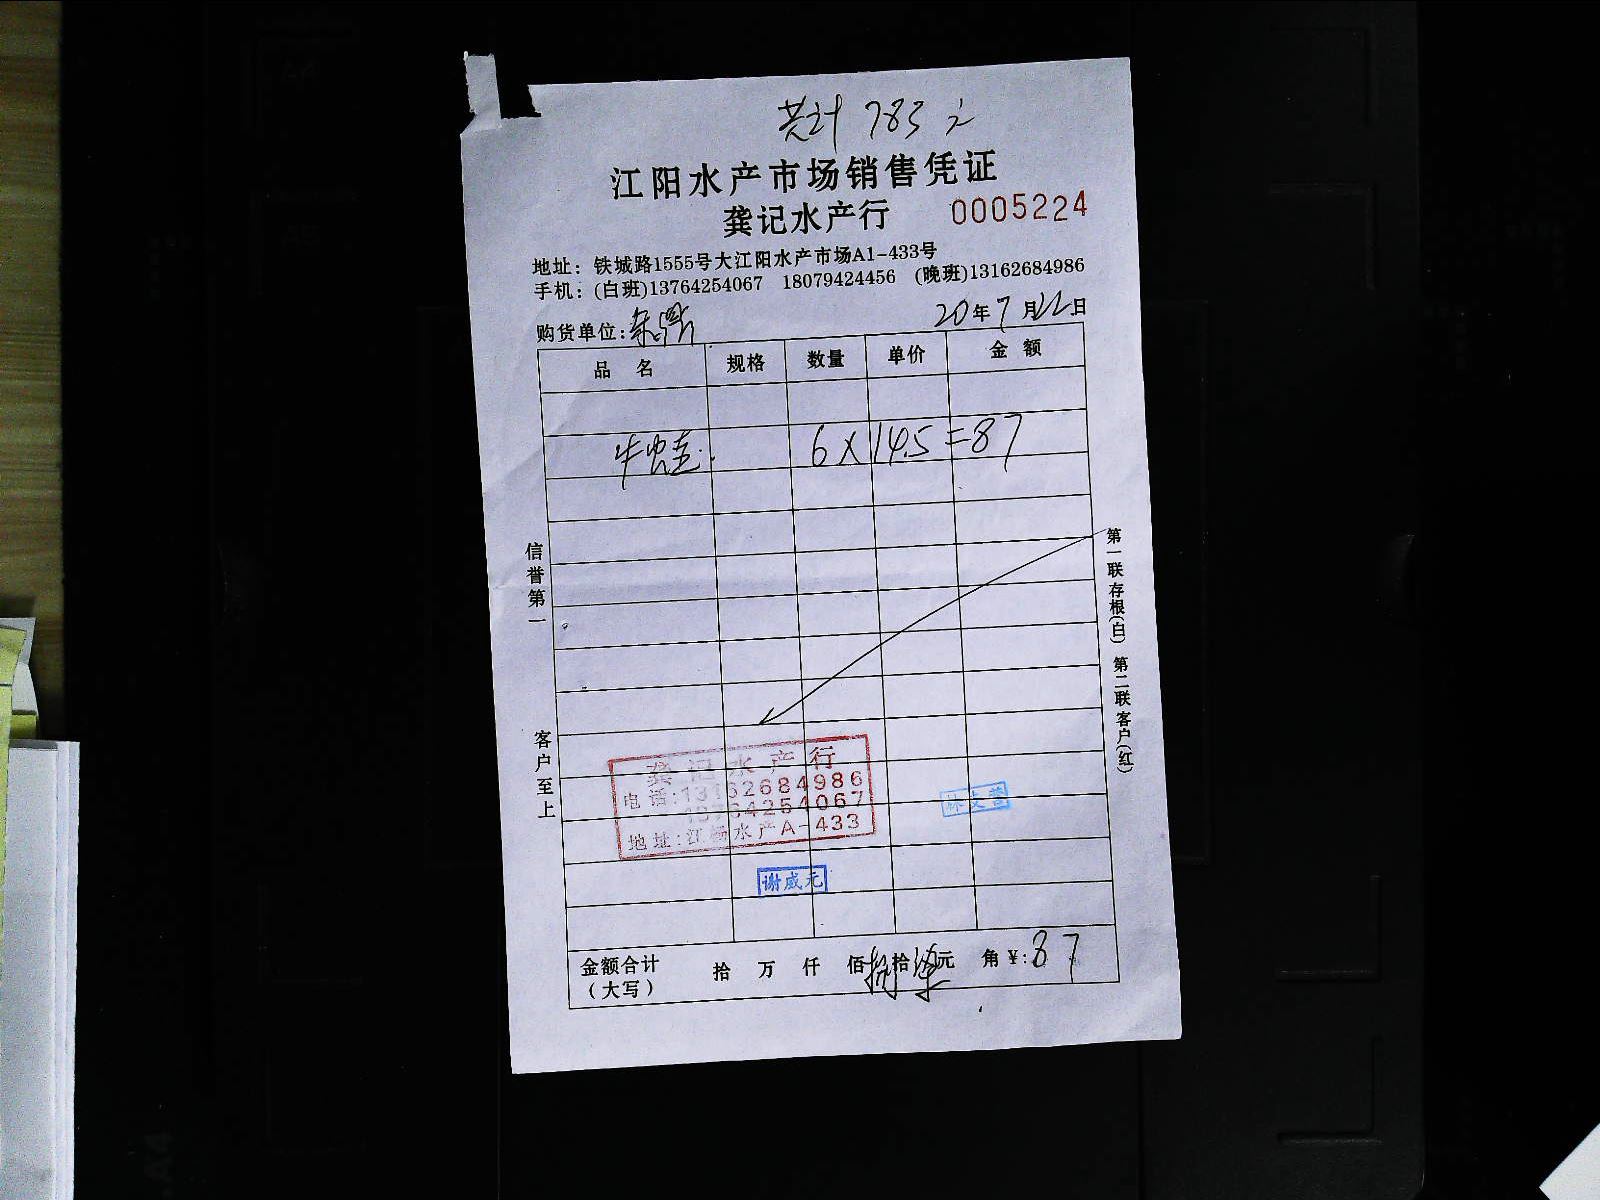 共计 783 元
江阳水产市场销售凭证
龚记水产行 0005224
地址：铁城路1555号大江阳水产市场A1-433号
手机：(白班)13764254067 18079424456 (晚班)13162684986
购货单位： 20年7月22日
品 名 规格 数量 单价 金 额
牛蛙 6×14.5=87
信誉第一
客户至上
第一联存根(白) 第二联客户(红)
龚记水产行
电话:13162684986
13764254067
地址:江杨水产A-433
林文蓥
谢威元
金额合计 拾 万 仟 佰捌拾柒元 角 ¥:87
(大写)
A4
A5
A4